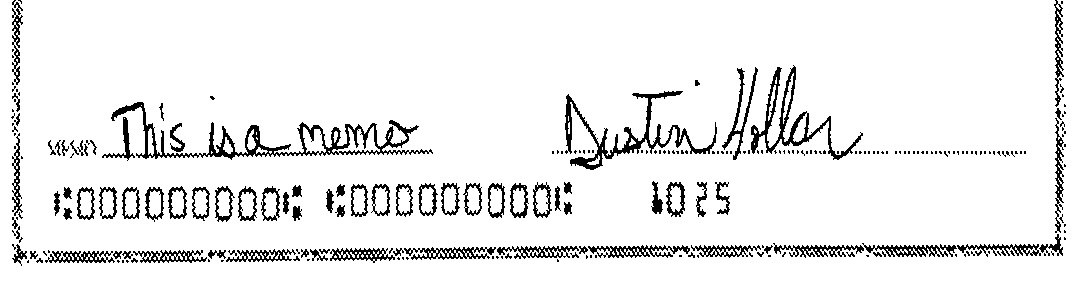 MEMO This is a memo Dustin Hollar
⑆000000000⑆ ⑆000000000⑆ 1025